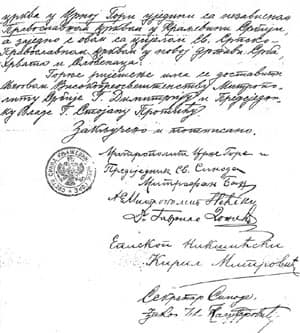 црква у Црној Гори уједини са независном
Православном Црквом у Краљевини Србији,
а заједно с овом са цјелом Св. Српском
Православном Црквом у новој Држави Срба,
Хрвата и Словенаца.
Горње рјешење има се доставити
Његовом Високопреосвештенству Митропо-
литу Србије Г. Димитрију и Предсједни-
ку Владе Г. Стојану Протићу.
Закључено и потписано.
Митрополит Црне Горе и
Предсједник Св. Синода
Митрофан Бан
Митрополит Пећски
Др. Гаврило Дожић
Епископ Никшићски
Кирил Митровић
Секретар Синода,